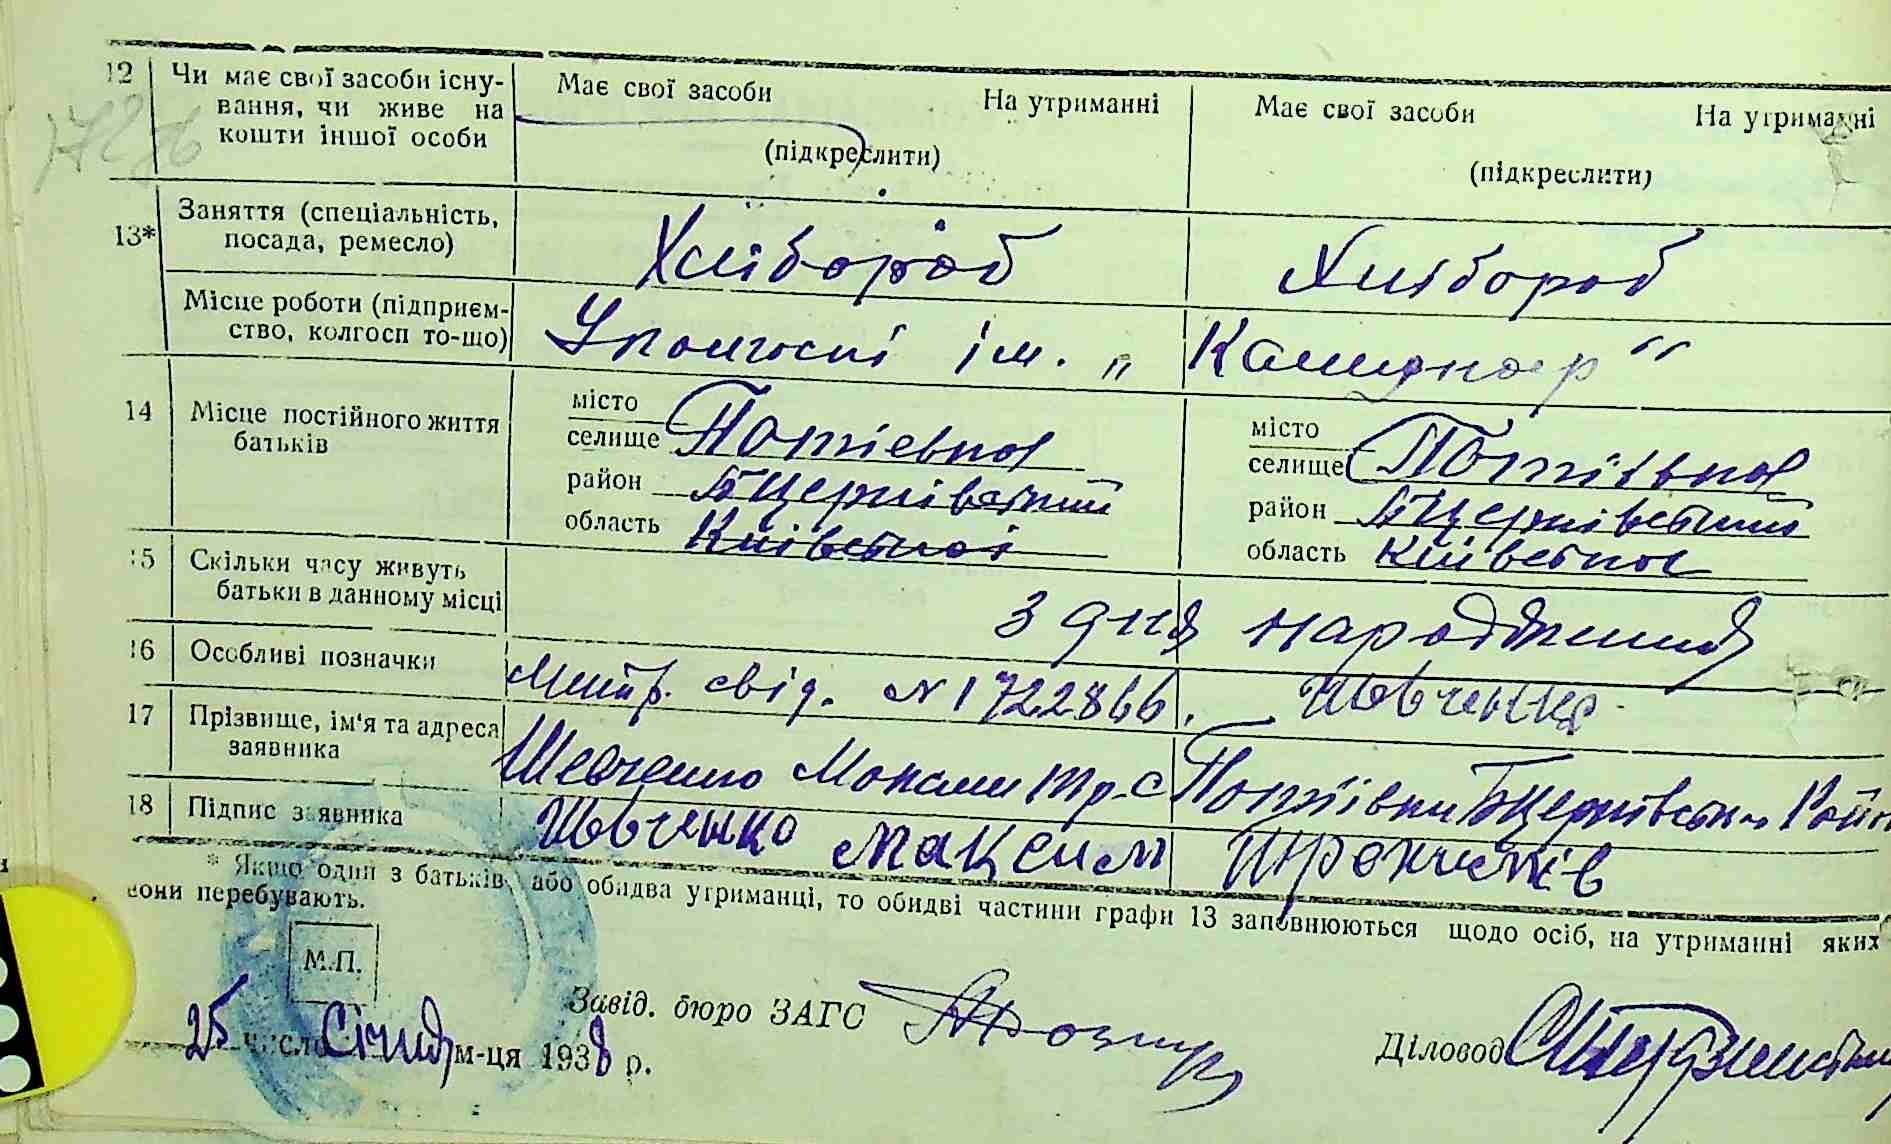 12 Чи має свої засоби існу- Має свої засоби На утриманні Має свої засоби На утриманні
вання, чи живе на
кошти іншої особи (підкреслити) (підкреслити)
13* Заняття (спеціальність, Хлібороб Хлібороб
посада, ремесло)
Місце роботи (підприєм- У колгоспі ім. „
ство, колгосп то-що)
14 Місце постійного життя місто місто
батьків селище Потіевка селище Потіївка
район Бцерківський район Бцерківський
область Київської область Київська
15 Скільки часу живуть
батьки в данному місці З дня народження
16 Особливі позначки свід. N 1722866. Шевченко
17 Прізвище, ім'я та адреса Шевченко Потіївки Бцерківськ Район
заявника
18 Підпис заявника Шевченко Максим
* Якщо один з батьків, або обидва утриманці, то обидві частини графи 13 заповнюються щодо осіб, на утриманні яких
вони перебувають.
М.П.
Завід. бюро ЗАГС
25 число Січня м-ця 1938 р.
Діловод